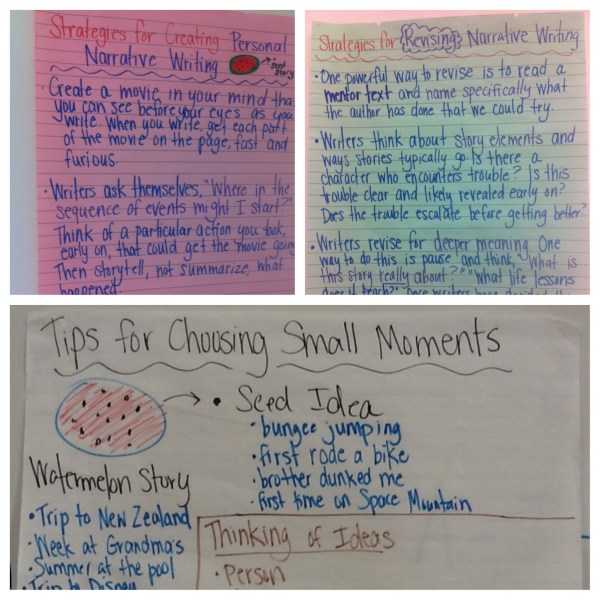 Strategies for Creating Personal
Narrative Writing
seed
story
• Create a movie in your mind tha
you can see before your eyes as you
write. When you write, get each part
of the movie on the page, fast and
furious.
• Writers ask themselves, "Where in the
sequence of events might I start?"
Think of a particular action you took,
early on, that could get the movie going
Then storytell, not summarize, what
happened.
Strategies for {Revising} Narrative Writing
• One powerful way to revise is to read a
mentor text and name specifically what
the author has done that we could try.
• Writers think about story elements and
ways stories typically go. Is there a
character who encounters trouble? Is this
trouble clear and likely revealed early on?
Does the trouble escalate before getting better?
• Writers revise for deeper meaning. One
way to do this is pause and think, "What is
this story really about?" "What life lessons
does it teach?" Once writers have
Tips for Choosing Small Moments
• Seed Idea
• bungee jumping
• first rode a bike
• brother dunked me
• first time on Space Mountain
Watermelon Story
• Trip to New Zealand
• Week at Grandma's
• Summer at the pool
• Trip to Disney
Thinking of Ideas
• Person